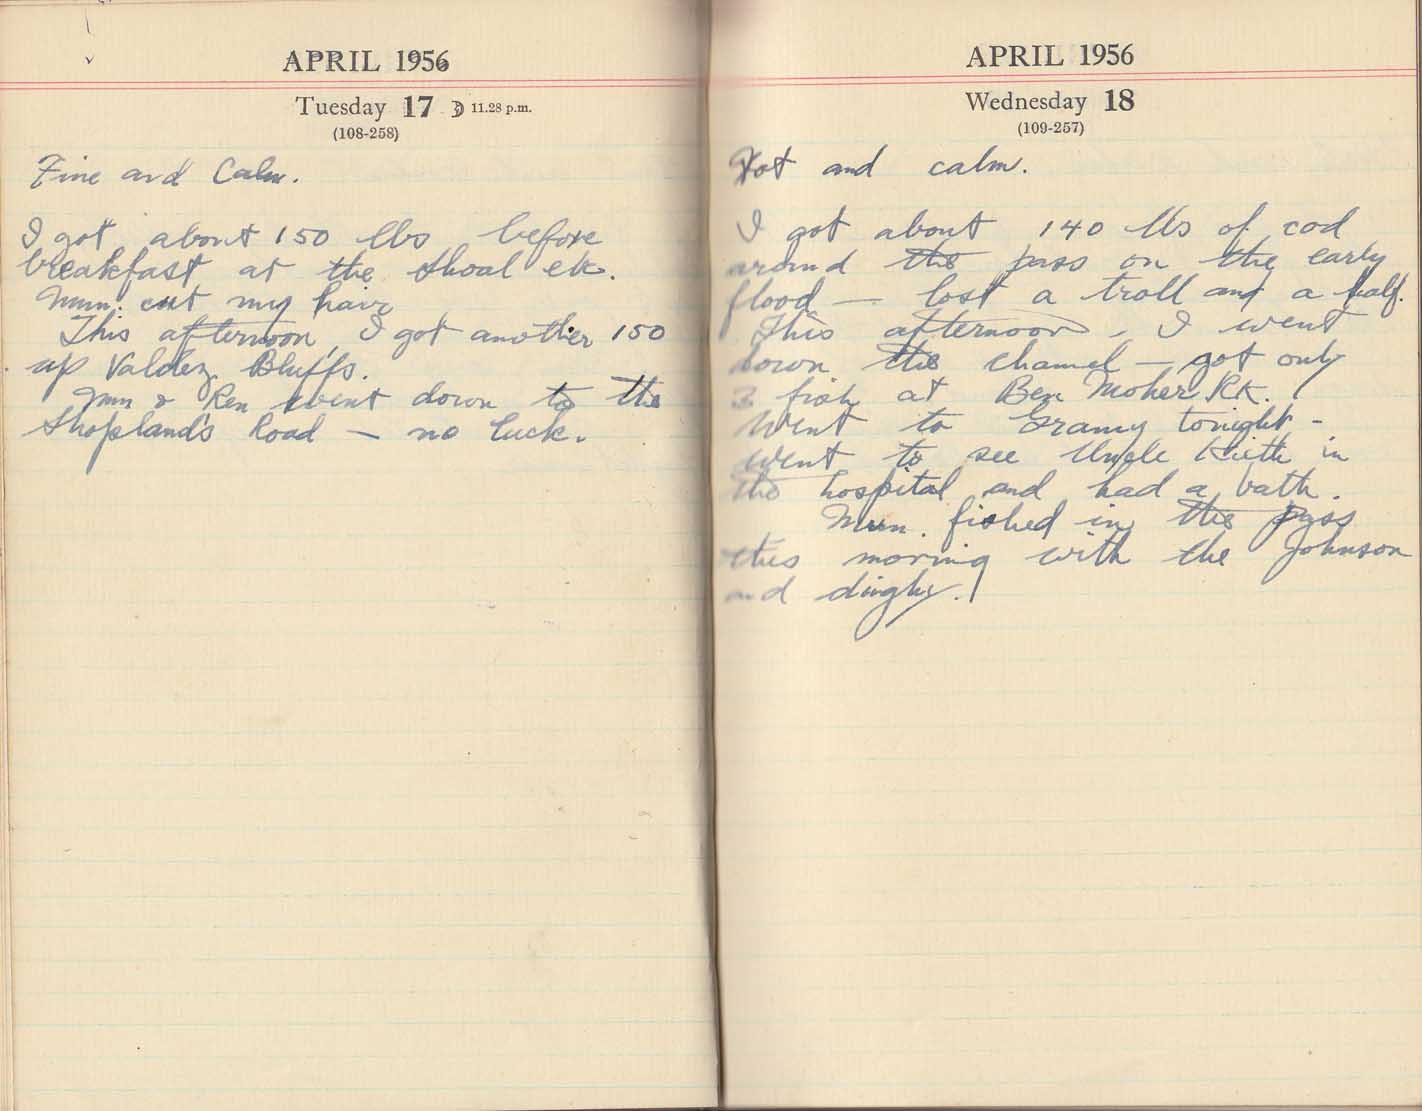 APRIL 1956
Tuesday 17 11.28 p.m.
(108-258)
Fine and Calm.
I got about 150 lbs before
breakfast at the shoal etc.
Mum. cut my hair
This afternoon I got another 150
up Valdez Bluffs.
Mum & Ren went down to the
Shopland's Road — no luck.
APRIL 1956
Wednesday 18
(109-257)
Hot and calm.
I got about 140 lbs of cod
around the pass on the early
flood — lost a troll and a half.
This afternoon, I went
down the channel — got only
3 fish at Ben Moher Rk.
Went to Granny tonight -
went to see Uncle Kieth in
the hospital and had a bath.
Mum. fished in the pass
this morning with the Johnson
and dinghy.